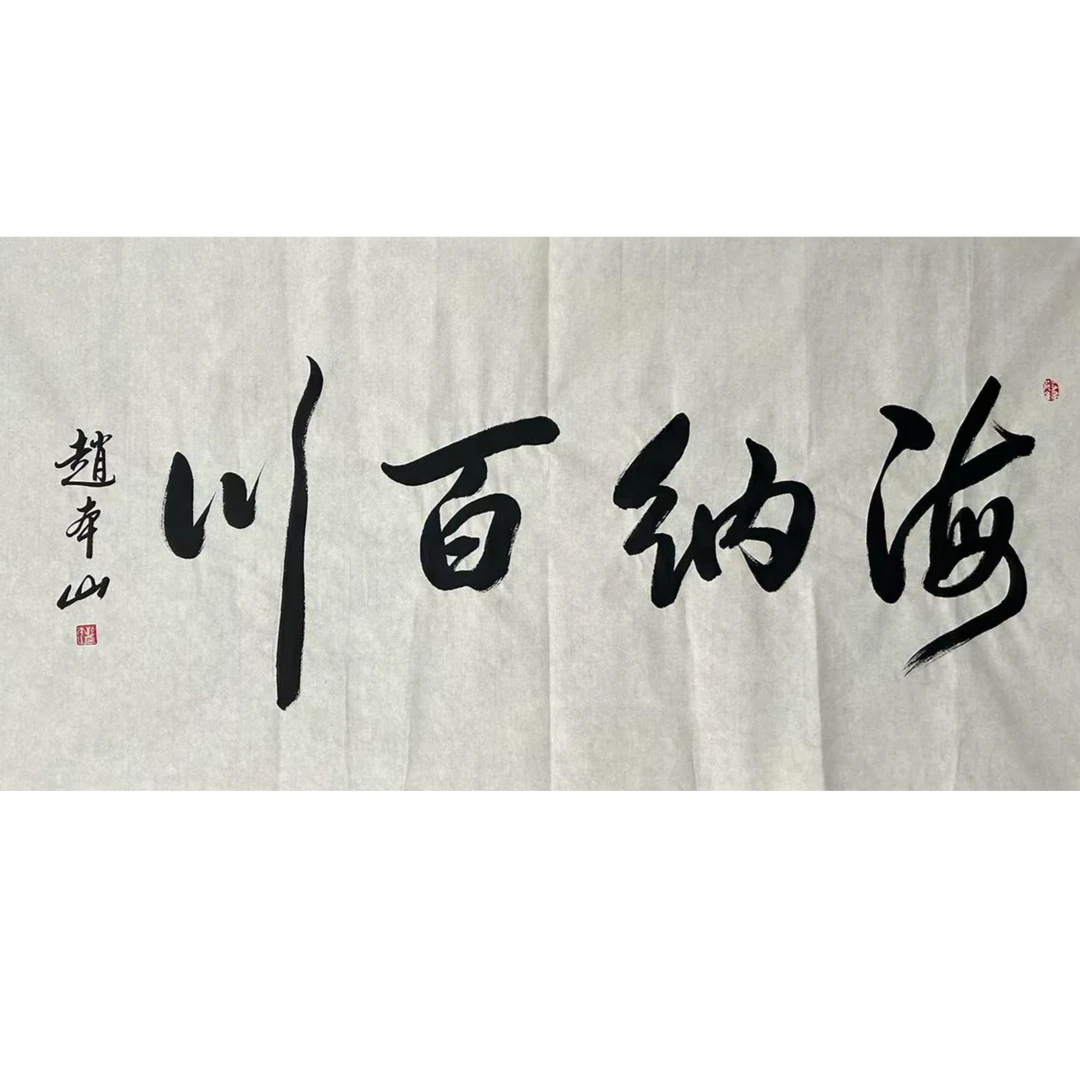 海納百川
趙本山